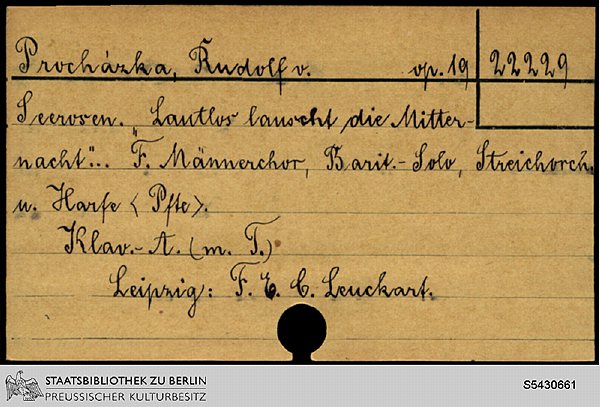 Procházka, Rudolf v. op. 19 22229
Seerosen. „Lautlos lauscht die Mitter-
nacht“... F. Männerchor, Barit.-Solo, Streichorch.
u. Harfe < Pfte >.
Klav.-A. (m. T.)
Leipzig: F. E. C. Leuckart.
STAATSBIBLIOTHEK ZU BERLIN
PREUSSISCHER KULTURBESITZ
S5430661